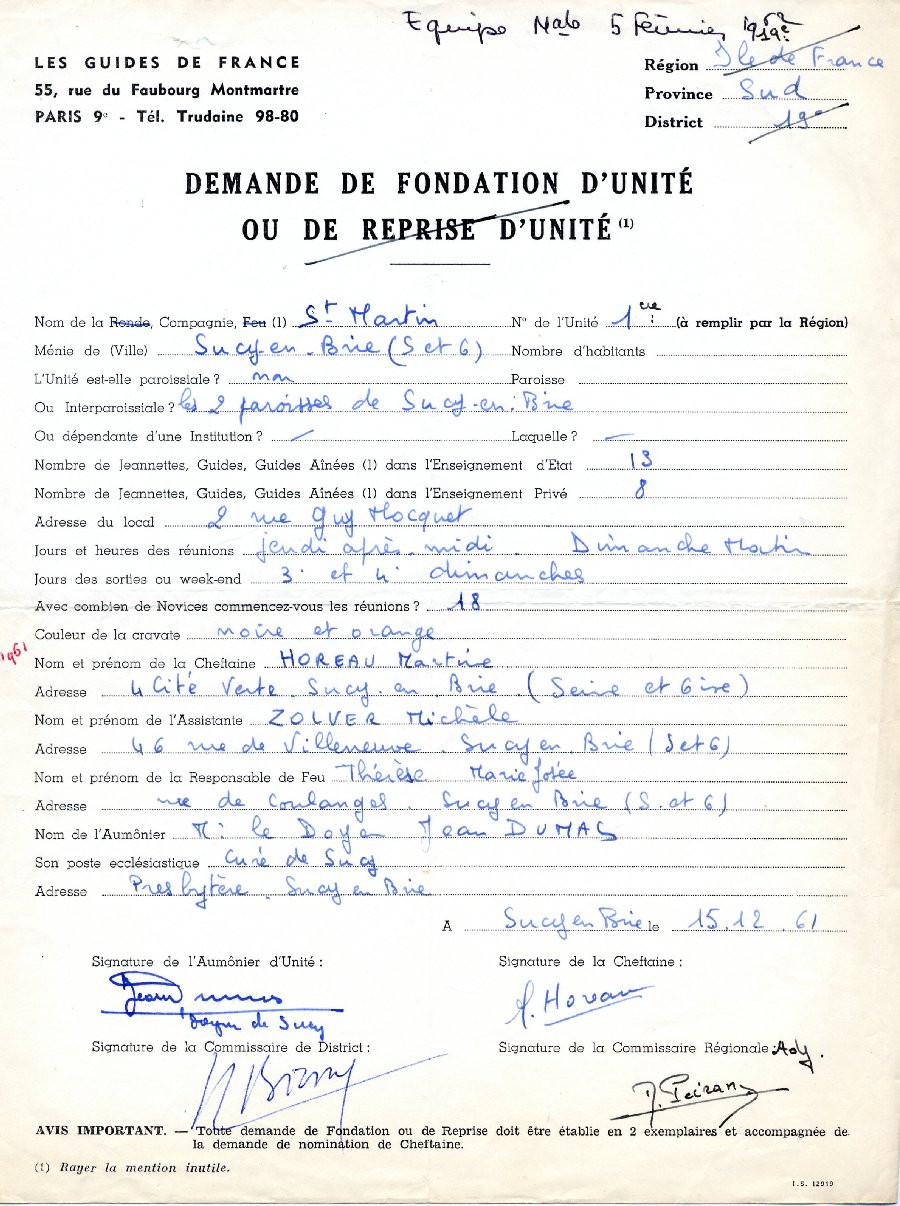 Equipe Nale 5 Février 1962
LES GUIDES DE FRANCE
55, rue du Faubourg Montmartre
PARIS 9e - Tél. Trudaine 98-80
Région Ile de France
Province Sud
District 19e
DEMANDE DE FONDATION D'UNITÉ
OU DE REPRISE D'UNITÉ (1)
Nom de la Ronde, Compagnie, Feu (1) St Martin N° de l'Unité 1ere (à remplir par la Région)
Ménie de (Ville) Sucy-en-Brie (S et O) Nombre d'habitants
L'Unité est-elle paroissiale ? non Paroisse
Ou Interparoissiale ? les 2 paroisses de Sucy-en-Brie
Ou dépendante d'une Institution ? — Laquelle ? —
Nombre de Jeannettes, Guides, Guides Aînées (1) dans l'Enseignement d'Etat 13
Nombre de Jeannettes, Guides, Guides Aînées (1) dans l'Enseignement Privé 8
Adresse du local 2 rue Guy Mocquet
Jours et heures des réunions jeudi après-midi. Dimanche Matin
Jours des sorties ou week-end 3e et 4e dimanches
Avec combien de Novices commencez-vous les réunions ? 18
Couleur de la cravate noire et orange
1961
Nom et prénom de la Cheftaine HOREAU Martine
Adresse 4 Cité Verte. Sucy. en Brie (Seine et Oise)
Nom et prénom de l'Assistante ZOLVER Michèle
Adresse 46 rue de Villeneuve. Sucy en Brie (S et O)
Nom et prénom de la Responsable de Feu Thérèse Marie Josée
Adresse rue de Coulanges. Sucy en Brie (S. et O)
Nom de l'Aumônier M. le Doyen Jean DUMAS
Son poste ecclésiastique Curé de Sucy
Adresse Presbytère. Sucy en Brie
A Sucy en Brie le 15.12.61
Signature de l'Aumônier d'Unité : Signature de la Cheftaine :
Jean Dumas M. Horeau
Doyen de Sucy
Signature de la Commissaire de District : Signature de la Commissaire Régionale : Adj.
AVIS IMPORTANT. — Toute demande de Fondation ou de Reprise doit être établie en 2 exemplaires et accompagnée de
la demande de nomination de Cheftaine.
(1) Rayer la mention inutile.
I.S. 12919